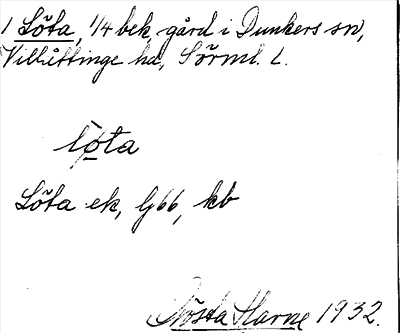 1 Löta, 1/4 bek, gård i Dunkers sn,
Villåttinge hd, Sörml. L.
løta
Löta ek, Gb6, kb
Gösta Harne 1932.